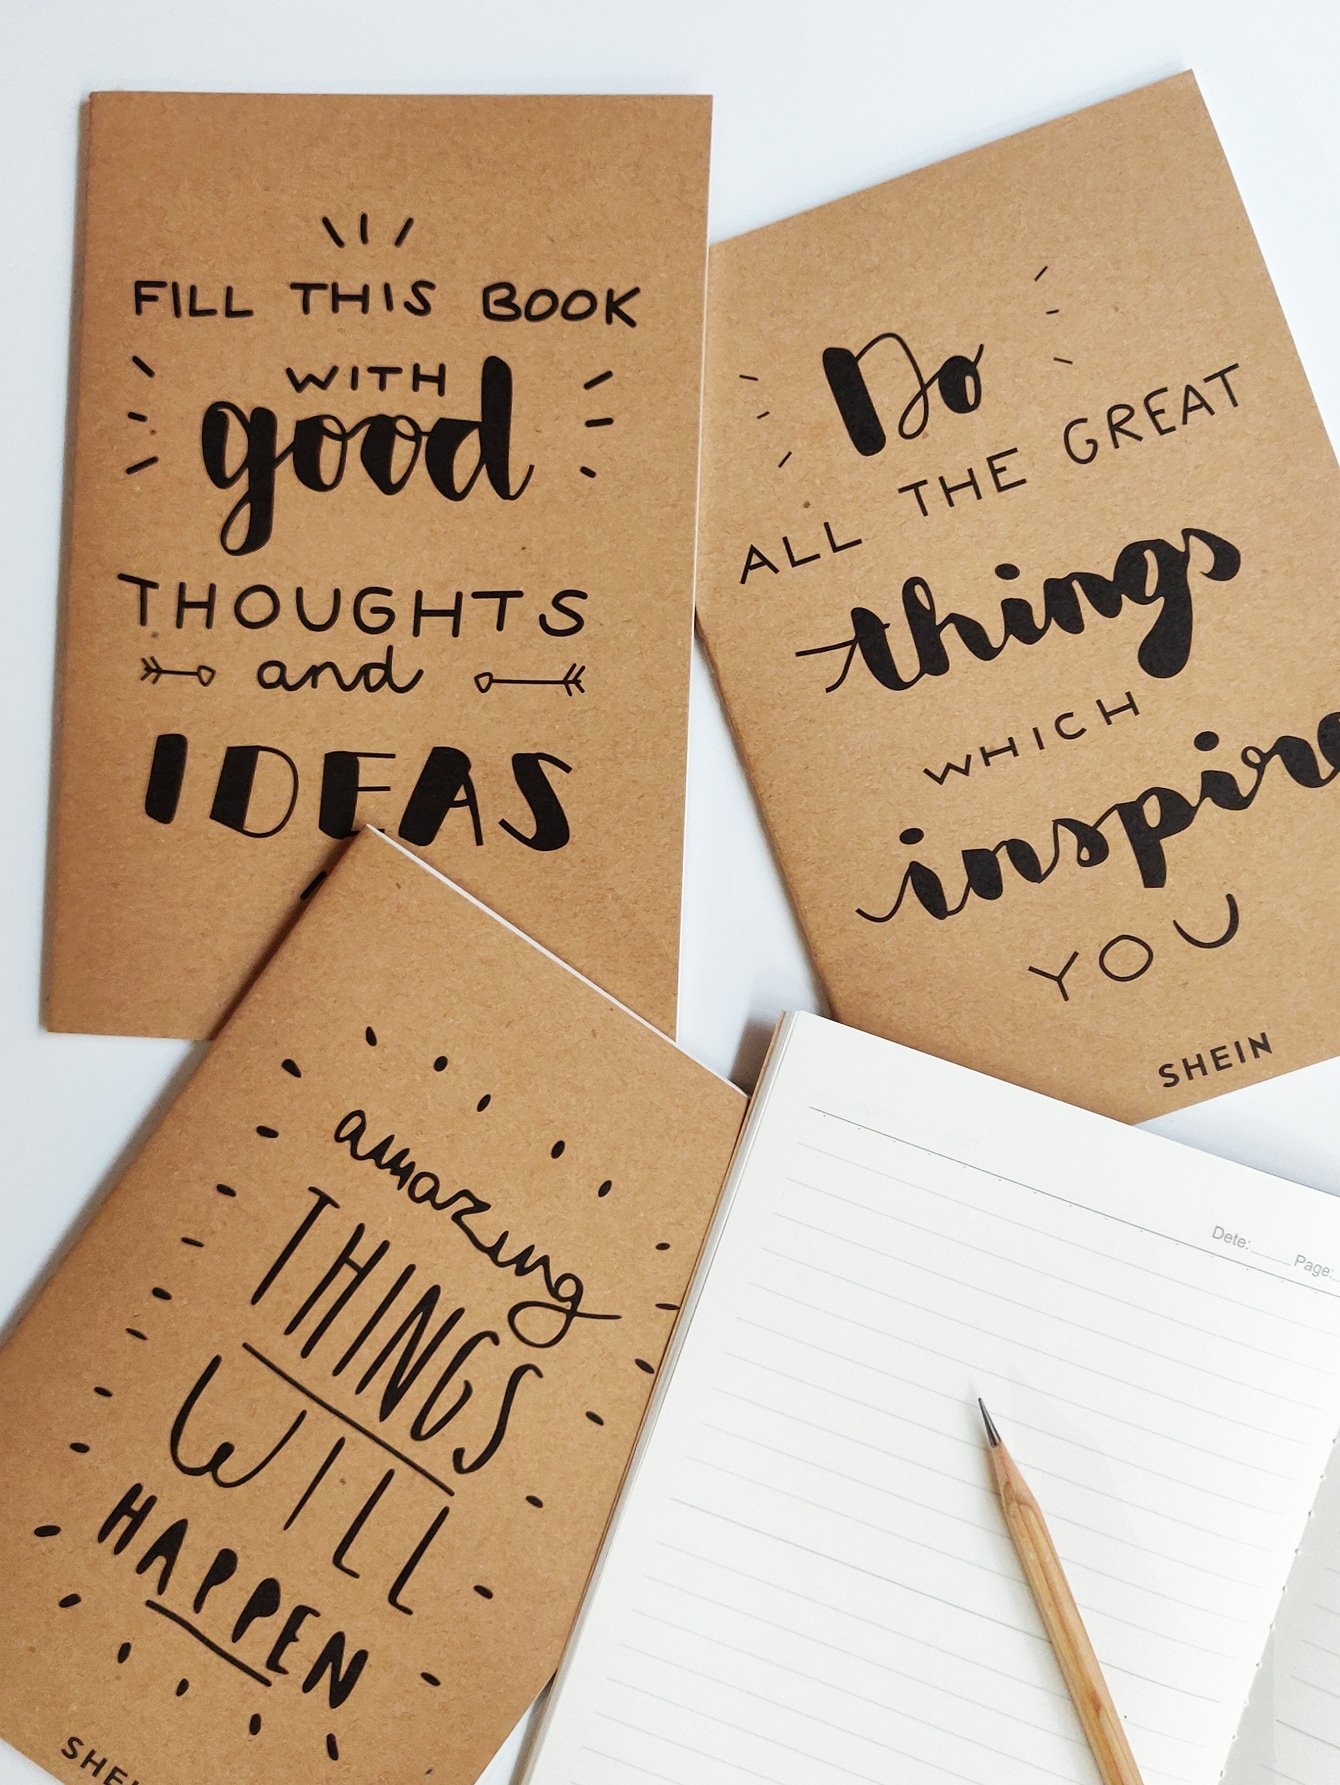 FILL THIS BOOK
WITH
good
THOUGHTS
and
IDEAS
Do
ALL THE GREAT
things
WHICH
inspire
YOU
SHEIN
amazing
THINGS
WILL
HAPPEN
SHEI
Dete:
Page: